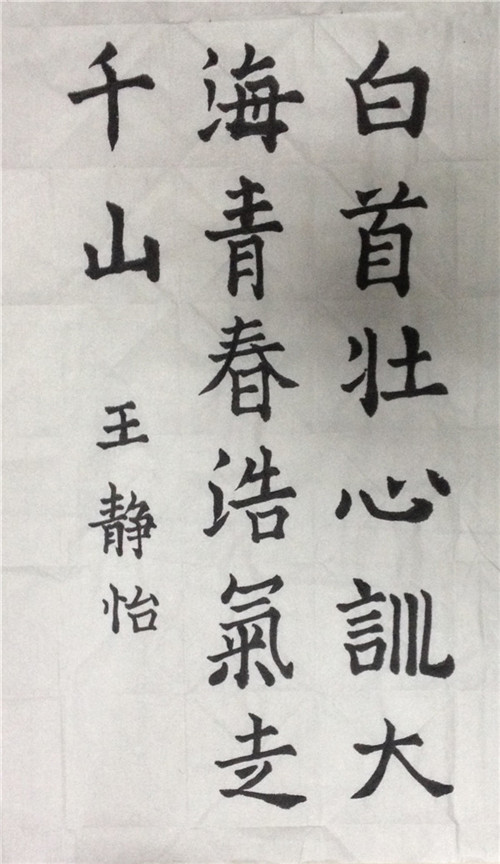 白首壮心訓大
海青春浩氣走
千山
王静怡